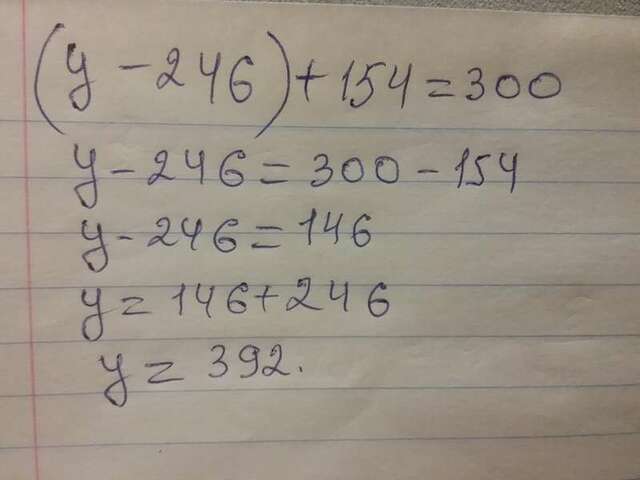 (y - 246) + 154 = 300
y - 246 = 300 - 154
y - 246 = 146
y = 146 + 246
y = 392.